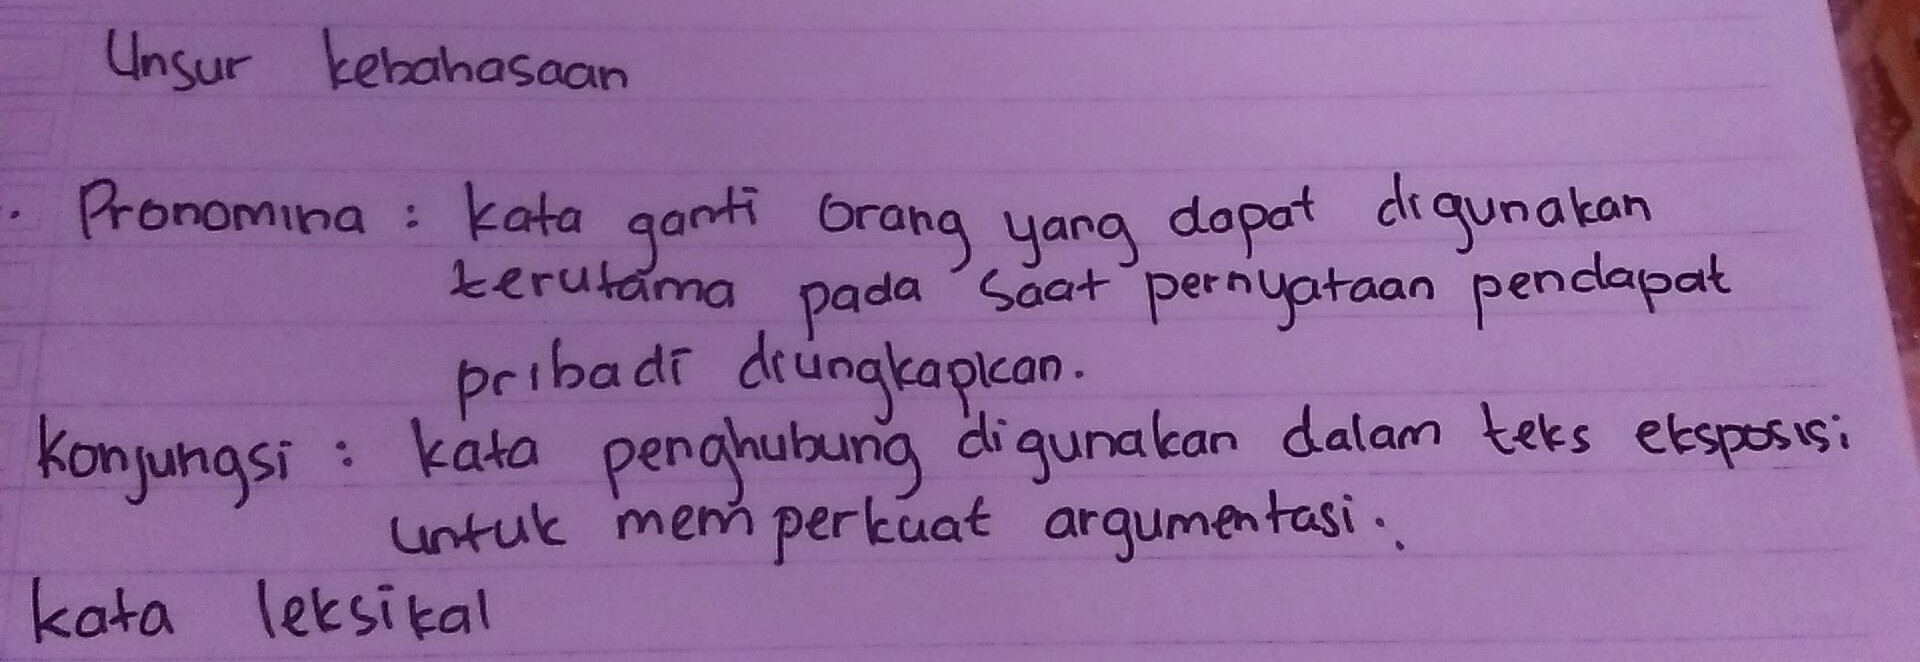 Unsur kebahasaan
. Pronomina : kata ganti orang yang dapat digunakan
terutama pada saat pernyataan pendapat
pribadi diungkapkan.
Konjungsi : kata penghubung digunakan dalam teks eksposisi
untuk memperkuat argumentasi.
kata leksikal